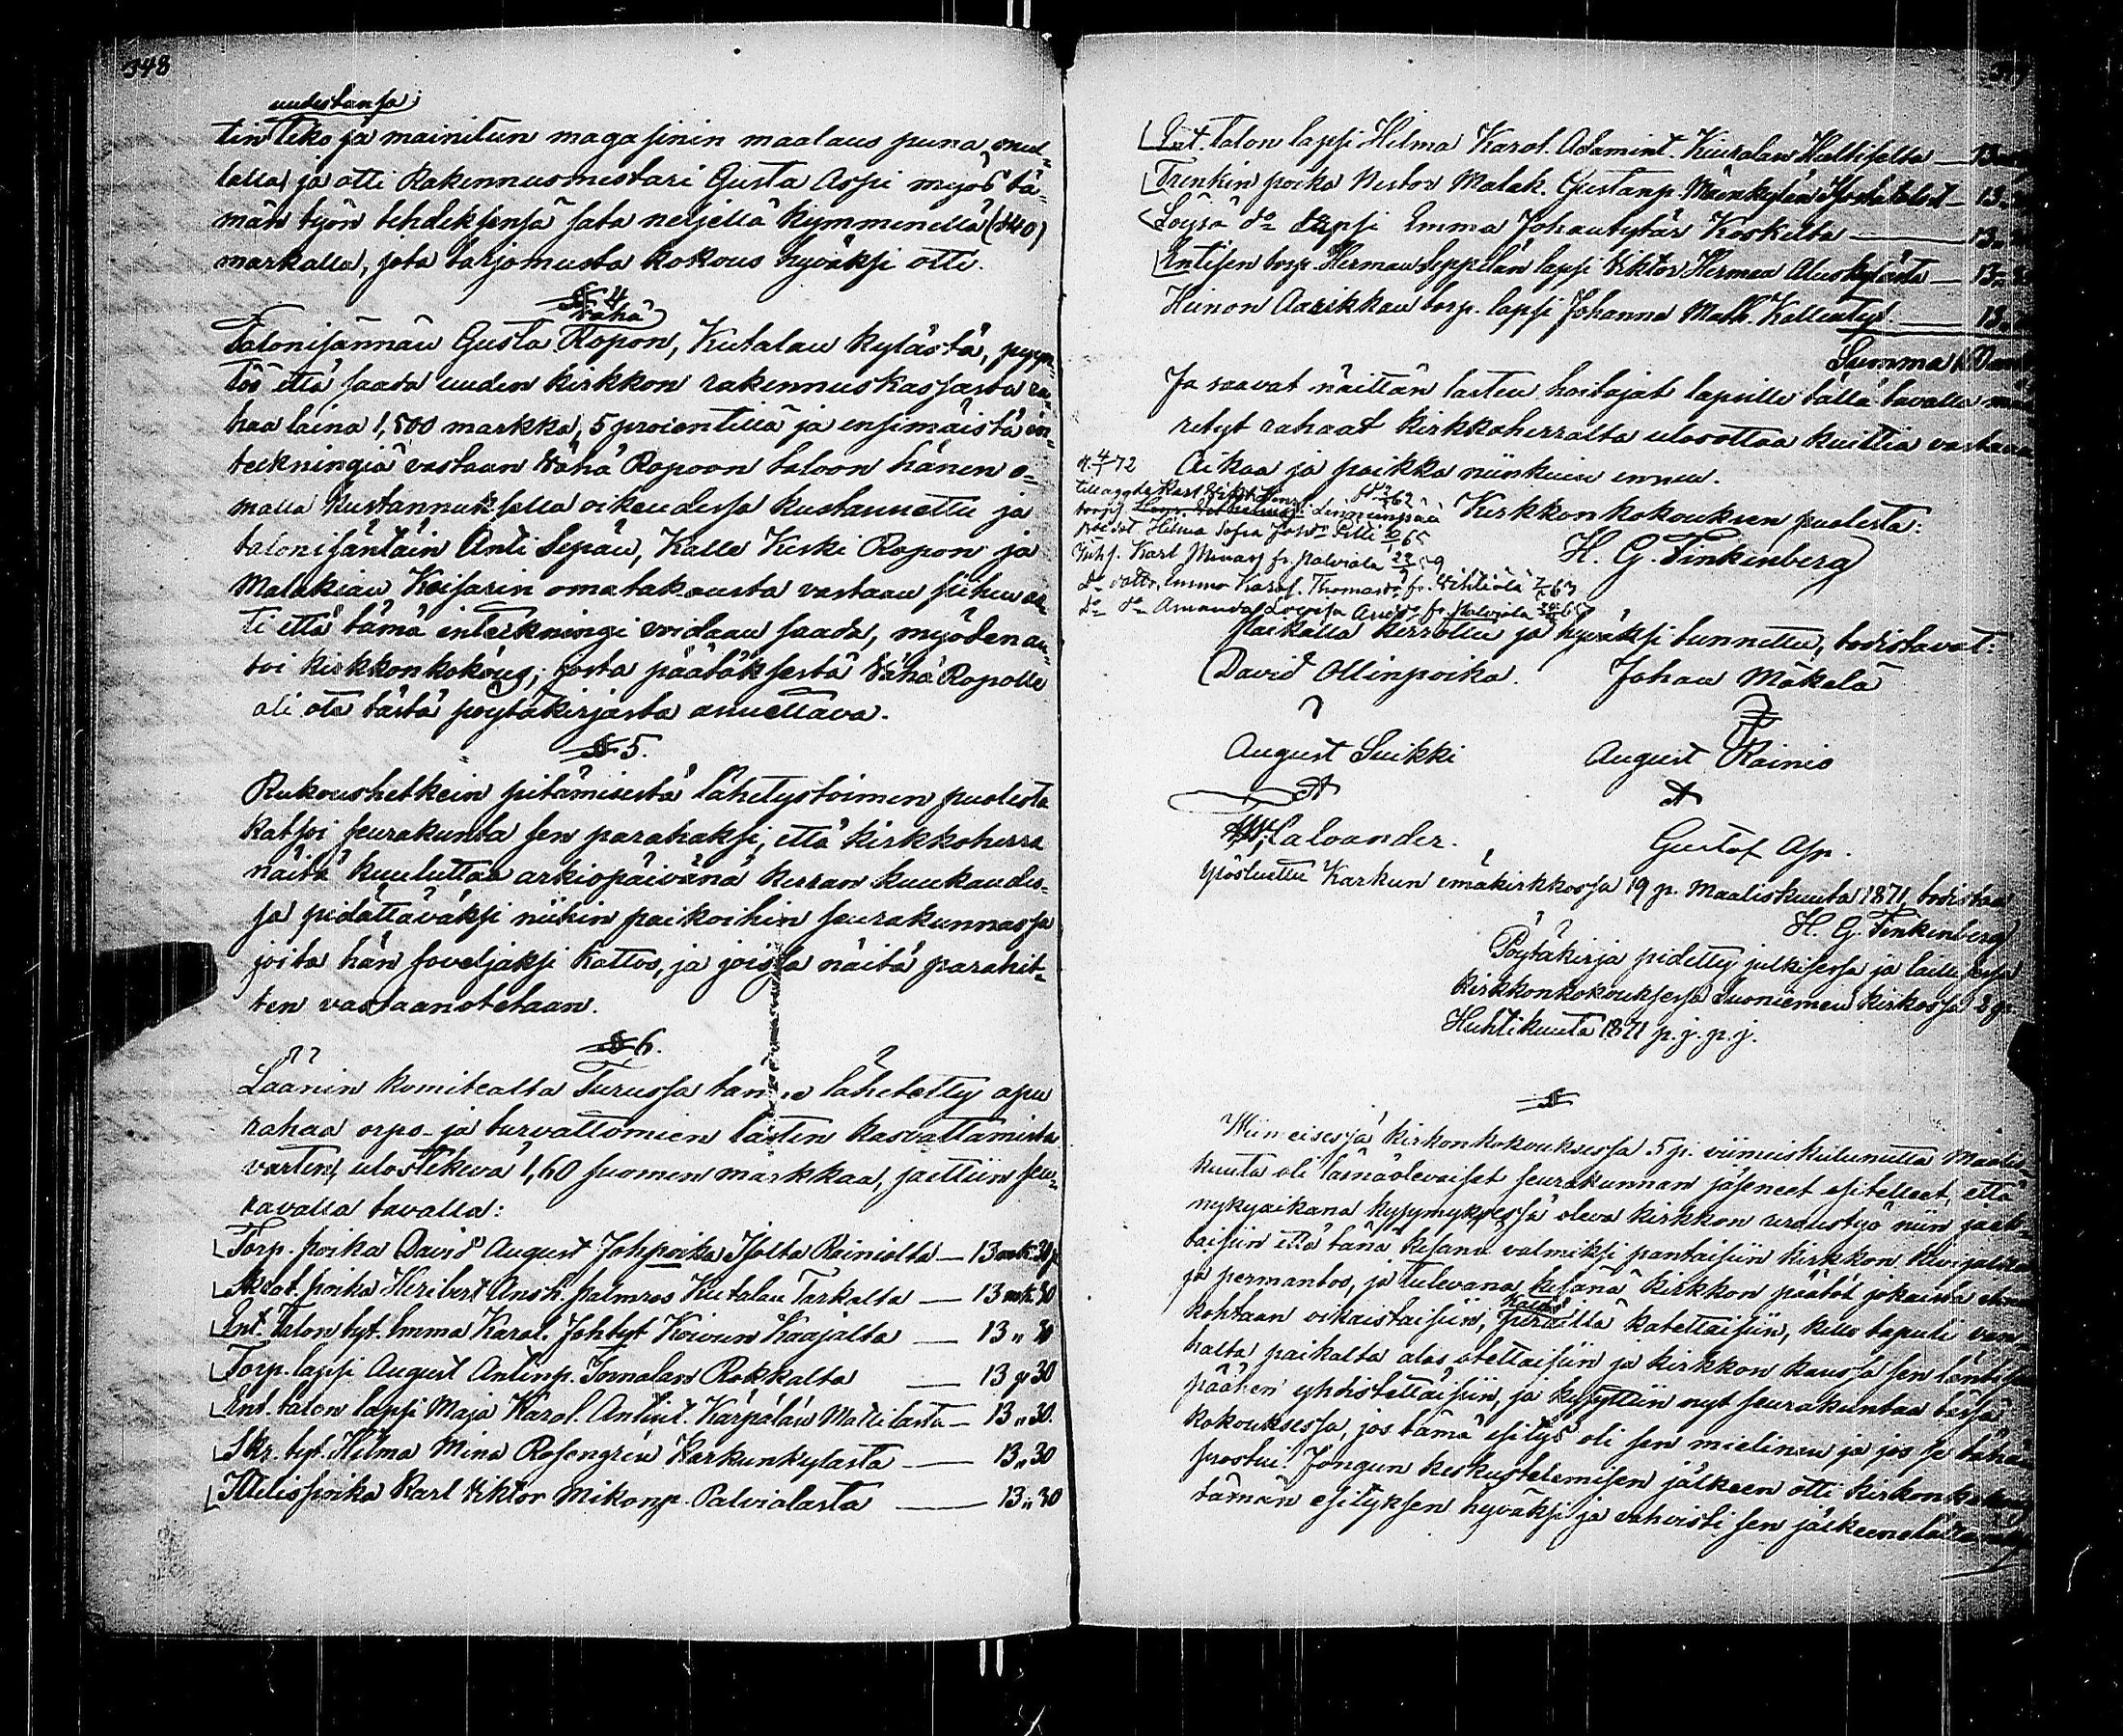 348
uudestansa
tin teko ja mainitun magasinin maalaus puna mul-
lalla, ja otti Rakennusmestari Gusta Aspi myös tä-
män työn tehdeksensä sata neljellä kymmenellä (140)
markalla, jota tarjomusta kokous hyväksi otti.
§ 4
Vähä
Talonisännän Gusta Ropon, Kutalan kylästä, pyyn-
tös että saada uuden kirkkon rakennuskassasta ra-
haa laina 1,500 markka, 5 procentillä ja ensimäistä in-
teckningiä vastaan Vähä Ropoon taloon hänen o-
malla kustannuksella oikeudessa kustannettu ja
talonisäntäin Anti Sepän, Kalle Keski Ropon ja
Malakian Keisarin omatakausta vastaan siihen as-
ti että tämä inteckningi voidaan saada, myöden an-
toi kirkkonkokous; josta päätöksestä Vähä Ropolle
oli ote tästä pöytäkirjasta annettava.
§ 5.
Rukoushetkein pitämisestä lähetystoimen puolesta
katsoi seurakunta sen parahaksi, että kirkkoherra
näitä kuuluttaa arkiopäivänä kerran kuukaudes-
sa pidättäväksi niihin paikoihin seurakunnassa
joita hän soveljaksi kattoo, ja joissa näitä parahit-
ten vastaanotetaan.
§ 6.
Läänin komitealta Turussa tänne lähetetty apu
rahaa orpo- ja turvattomien lasten kasvattamista
varten, ulostekevä 1,60 suomen markkaa, jaettiin seu-
ravalla tavalla:
Torp. poika David August Johpoika Isolta Rainiolta — 13 mk 30 p
poika Heribert Ansh. Palmros Kutalan Tarkalta — 13 mk 30
Ent. Talon tyt. Emma Karol. Johtyt Koivun Kaajalta — 13 " 30
Torp. lapsi August Antinp. Tomalan Rokkalta — 13 " 30
Ent. talon lapsi Maja Karol. Antint. Kärpälän Mattilasta — 13 " 30.
Skr. tyt. Hilma Mina Rosengrén Karkunkylästa — 13 " 30
Itellispoika Karl Viktor Mikonp. Palvialasta — 13 " 30
Ent. talon lapsi Hilma Karol. Adamint. Kiuralan — 13
Trenkin poika Nestor Malak. Gustanp. — 13
Loysä do lapsi Emma Johantytär Koskelta — 13
Entisen torp. Herman Seppälän lapsi Viktor Herman Aluskylästä — 13
Heinon Aarikkan torp. lapsi Johanna Math. — 13
Summa 160
Ja saavat näittän lasten hoitajat lapsille tällä tavalla
rahaat kirkkoherralta ulosottaa kuittia vastaan
Aikaa ja paikka niinkuin ennen.
Kirkkonkokouksen puolesta:
H. G. Finkenberg
Hilma Sofia
Karl fr. Palviala
Emma Karol. Thomasdr fr.
do do Amanda Lovisa fr. Palviala
Paikalla kerrottu ja hyväksi tunnettu, todistavat:
David Ollinpoika. Johan Mäkelä
August Suikki August Rainio
Caloander. Gustaf Asp.
ylösluettu Karkun emäkirkkossa 19 p. Maaliskuuta 1871, todistaa
H. G. Finkenberg
Pöytäkirja pidetty julkisessa ja laillisessa
kirkkonkokouksessa Suoniemen kirkossa 2 p.
Huhtikuuta 1871 p. j. p. j.
§
Wiimeisessä kirkonkokouksessa 5 p. viimeiskulunutta Maalis-
kuuta oli läsnäolevaiset seurakunnan jäseneet esitelleet, että
nykyaikana kysymyksessä oleva kirkkon uraustyö niin jaet-
taisiin että tänä kesänä valmiksi pantaisiin kirkkon kivijalka
ja permantoo, ja tulevana kesänä kirkkon päätöt jokaista
kohtaan oikaistaisiin, katto päreillä katettaisiin, kello tapuli van-
halta paikalta alas otettaisiin ja kirkkon kanssa sen
päähen yhdistettäisiin, ja kysyttiin nyt seurakuntaa tässä
kokouksessa, jos tämä esitys oli sen mielinen ja jos se tähän
suostui? Jongun keskustelemisen jälkeen otti kirkonkokous
tämän esityksen hyväksi ja vahvisti sen